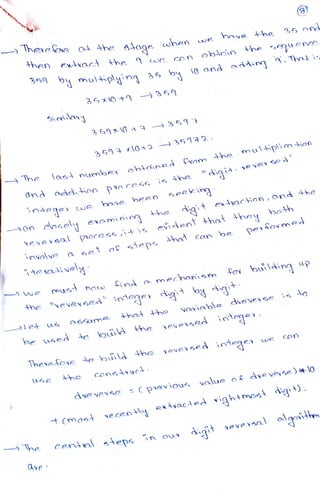 → Therefore at the stage when we have the 35 and
then extract the 9 we can obtain the sequence
359 by multiplying 35 by 10 and adding 9. That is
35x10 +9 → 359
Similarly
359x10 + 7 → 3597
3597 x10+2 → 35972.
→ The last number obtained from the multiplication
and addition process is the "digit-reversed"
integer we have been seeking.
→ on closely examining the digit extraction, and the
reversal process, it is evident that they both
involve a set of steps that can be performed
iteratively.
→ We must now find a mechanism for building up
the "reversed" integer digit by digit.
→ Let us assume that the variable dreverse is to
be used to build the reversed integer.
Therefore to build the reversed integer we can
use the construct.
dreverse = (previous value of dreverse)*10
+ (most recently extracted rightmost digit).
→ The central steps in our digit reversal algorithm
are.